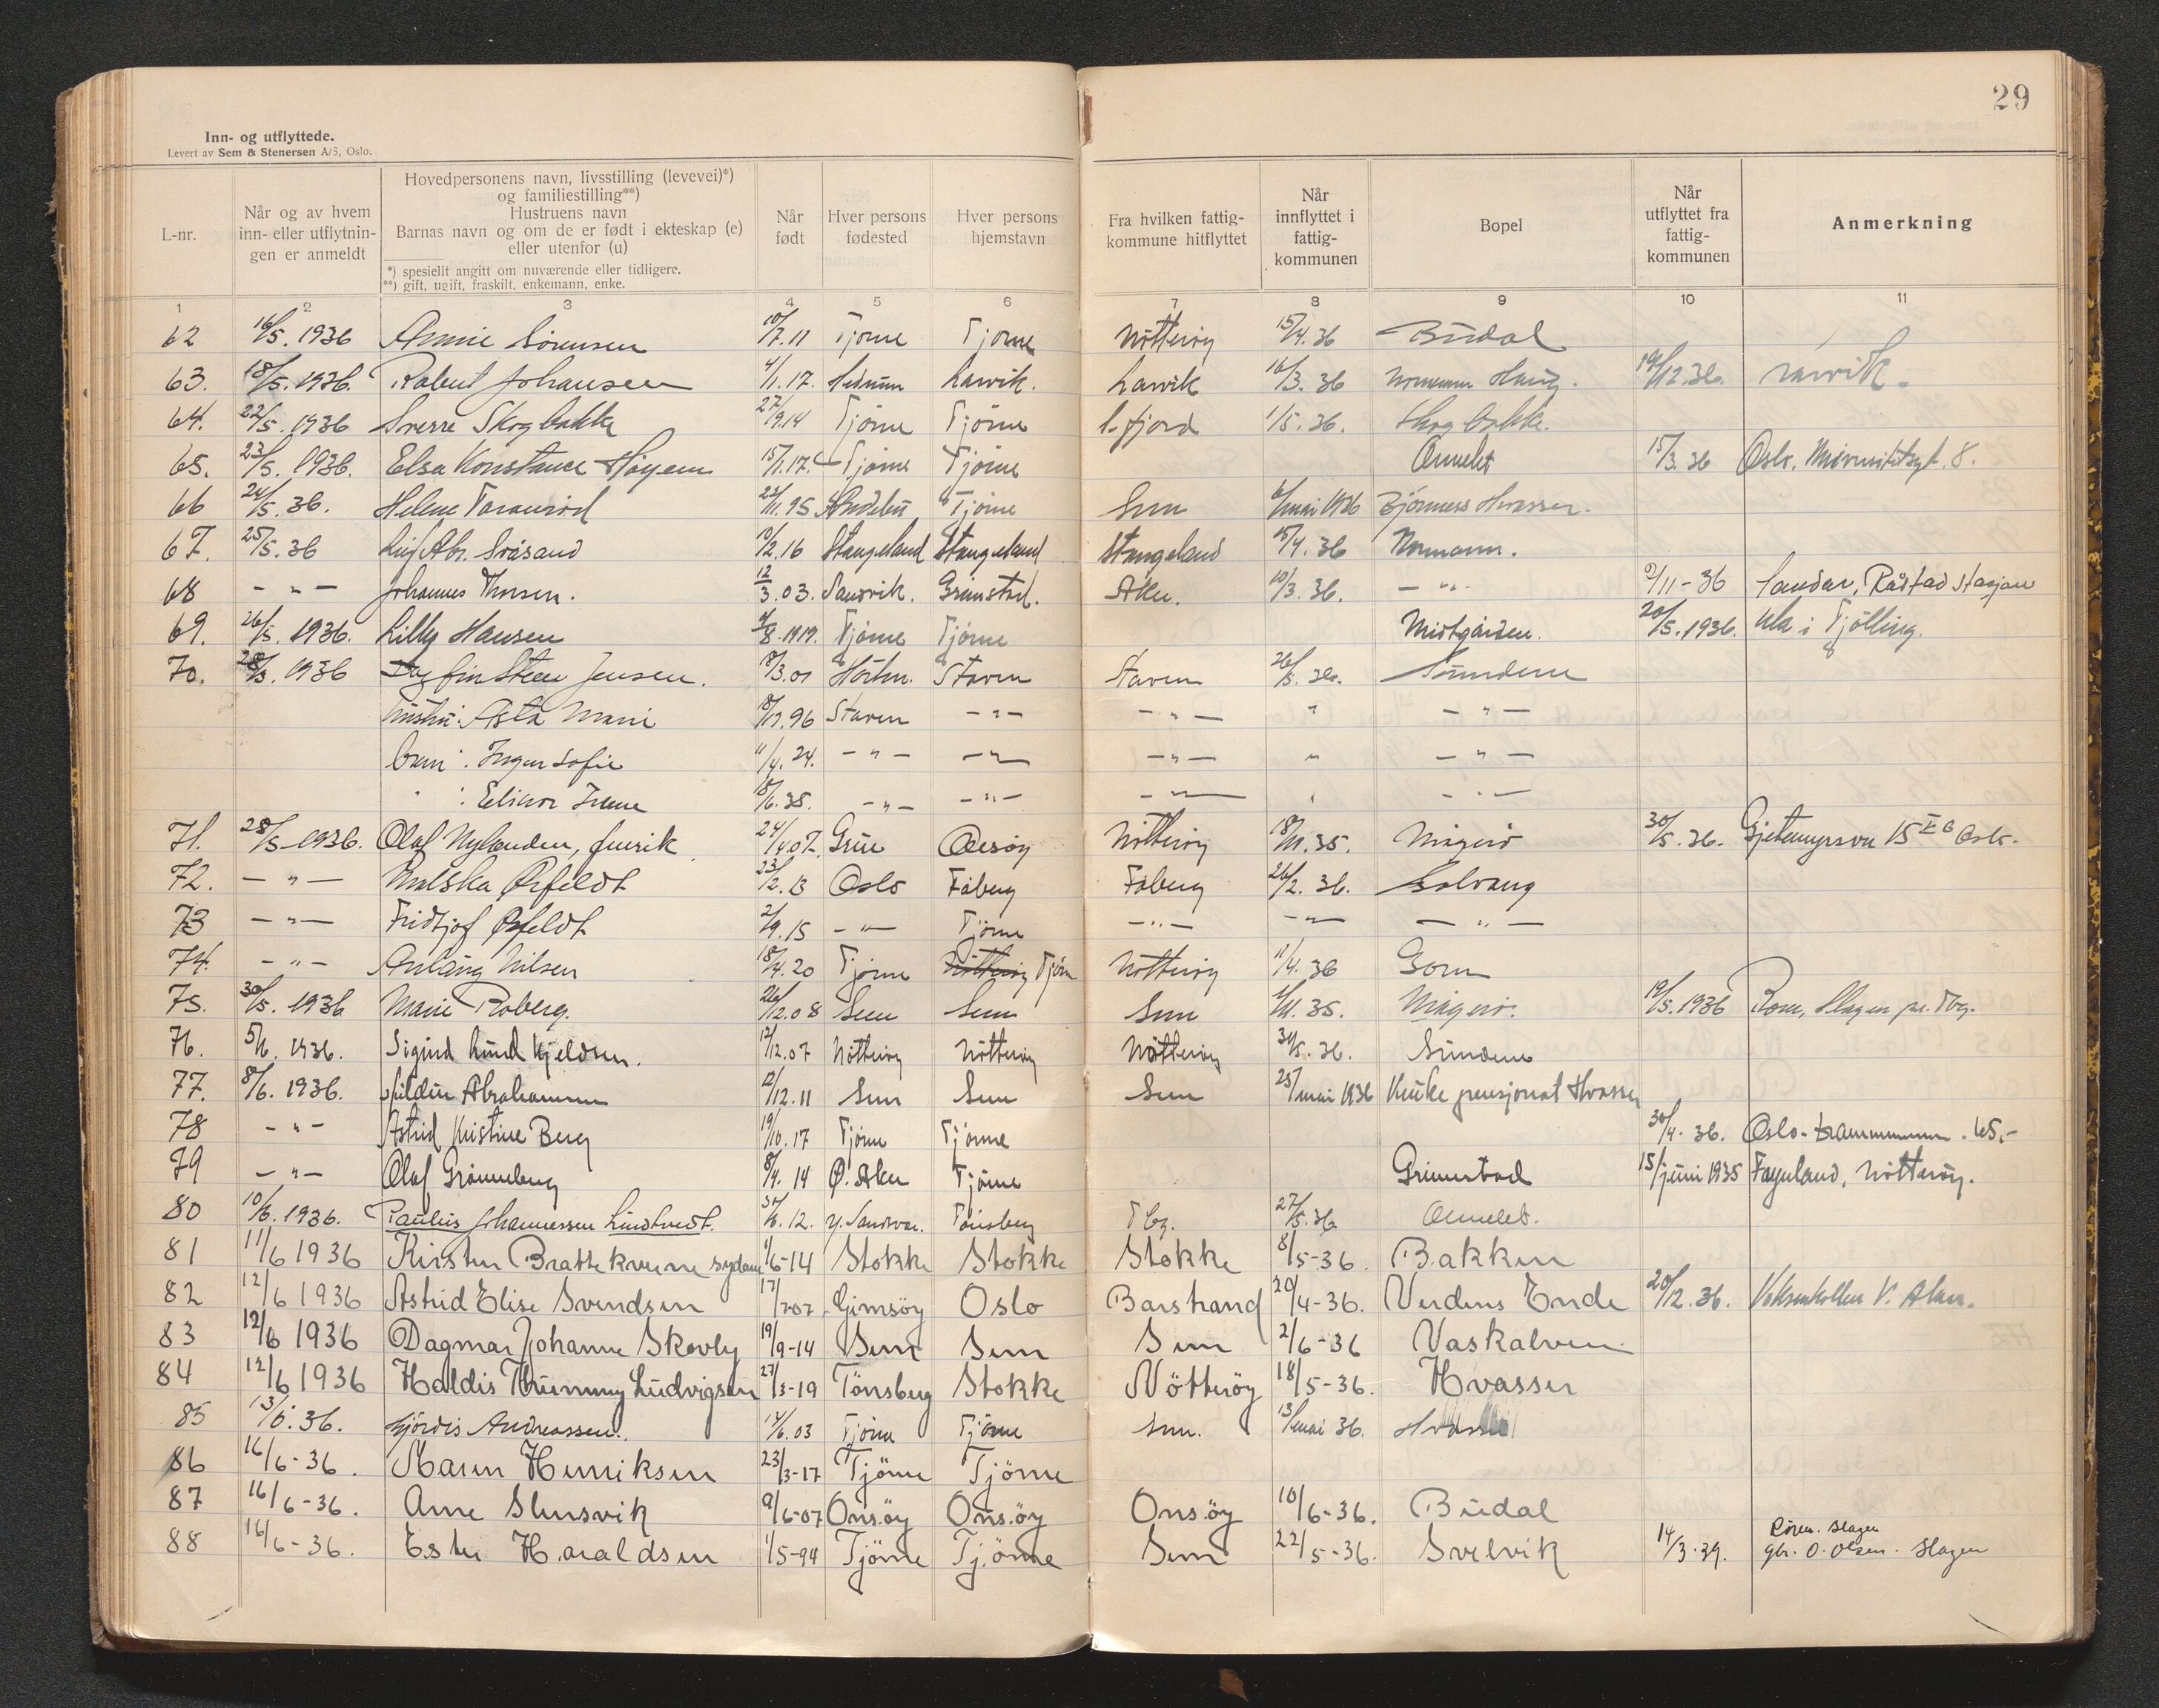 29
Inn- og utflyttede.
Levert av Sem & Stenersen A/S, Oslo.
L-nr.
Når og av hvem inn- eller utflytnin-gen er anmeldt
Hovedpersonens navn, livsstilling (levevei)*) og familiestilling**)
Hustruens navn
Barnas navn og om de er født i ekteskap (e) eller utenfor (u)
*) spesiellt angitt om nuværende eller tidligere.
**) gift, ugift, fraskilt, enkemann, enke.
Når født
Hver persons fødested
Hver persons hjemstavn
Fra hvilken fattig-kommune hitflyttet
Når innflyttet i fattig-kommunen
Bopel
Når utflyttet fra fattig-kommunen
Anmerkning
1 2 3 4 5 6 7 8 9 10 11
62 16/5. 1936 Annie Sørensen 10/7.11 Tjøme Tjøme Nøtterøy 15/4.36 Budal
63. 18/5. 1936. Robert Johansen 4/1.17. Hedrum Larvik. Larvik 16/3. 36 19/12.36. Larvik.
64. 22/5. 1936 Sverre Skogbakke 27/9.14 Tjøme Tjøme 1/5.36. Skogbakke.
65. 23/5. 1936. Elsa Konstance Høyem 15/1.17. Tjøme Tjøme Ormelet 15/3.36 Oslo, 8.
66 24/5. 36. Helene 22/11.95 Andebu Tjøme Sem 6/mai 1936 Bjønness Hvasser.
67. 25/5. 36 Abr. 10/2.16 Stangeland Stangeland Stangeland 15/4.36 Normann.
68 - " - Johannes Thorsen. 12/3.03. Sandvik. Grimstad. Aker. 10/3. 36. - " - 9/11-36 Sandar, Råstad stasjon
69. 26/5. 1936. Lilly Hansen 4/8.1919. Tjøme Tjøme Midtgården. 20/5.1936. Ula i Tjølling.
70. 28/5. 1936 Dagfin Steen Jensen. 18/3.01 Horten. Staven Staven 26/5.36. Sundene
hustru: Asta Marie 18/12.96 Staven - " - - " - " - " -
barn: Inger Sofie 11/4.24. - " - - " - - " - " - " -
" : Elinor Irene 18/6.35. - " - - " - - " - " - " -
71. 28/5-1936. Olaf Nylenden, fenrik 24/4.07. Grue Nøtterøy 18/11.35. Mågerø 30/5.36. Gjetemyrsvn 15 Oslo.
72. - " - Ørfeldt 23/2.13 Oslo Fåberg Fåberg 26/2. 36. Solvang
73 - " - Fridtjof Ørfeldt 2/9.15 - " - Tjøme - " - - " - - " -
74. - " - Anlaug Nilsen 18/4.20 Tjøme Nøtterøy Tjøm Nøtterøy 11/4.36 Gom
75. 30/5. 1936 Marie Roberg. 26/12.08 Sem Sem Sem 1/11.35. Mågerø. 19/5.1936 Rom, Slagen pr. Tbg.
76. 5/6. 1936. Sigurd Lund Kjeldsen. 12/12.07 Nøtterøy Nøtterøy Nøtterøy 30/5.36. Sundene
77. 8/6. 1936. Abrahamsen 12/12.11 Sem Sem Sem 25/mai 1936 pensjonat Hvasser
78 - " - Astrid Kristine Berg 19/10.17 Tjøme Tjøme 30/4.36. Oslo-
79 - " - Olaf Grønneberg 8/4.14 Ø. Aker Tjøme Grimestad 15/juni 1935 Fagerland, Nøtterøy.
80 10/6.1936. Paulus Johannessen Lindtvedt. 30/6.12. Y. Sandsvær. Tønsberg Tbg. 27/5.36 Ormelet.
81 11/6 1936 Kirsten Brattekverne sydame 1/6-14 Stokke Stokke Stokke 8/5-36. Bakken
82 12/6 1936 Astrid Elise Svendsen 17/7-07 Gimsöy Oslo Barstrand 20/4-36. Verdens Ende 20/12.36. Voksenkollen V. Aker.
83 12/6 1936 Dagmar Johanne Skovly 19/9-14 Sem Sem Sem 2/6-36 Vaskalven
84 12/6 1936 Haldis Ludvigsen 27/3-19 Tönsberg Stokke Nötteröy 18/5-36. Hvasser
85 13/6.36. Hjørdis Andreassen. 14/6.03 Tjøme Tjøme Sem. 13/mai 36. Hvasser
86 16/6-36. Maren Henriksen 23/3-17 Tjöme Tjöme
87 16/6-36. Arne Slensvik 9/6-07 Onsöy Onsöy Onsöy 10/6-36. Budal
88 16/6-36. Ester Haraldsen 1/5-94 Tjöme Tjöme Sem 22/5-36. Svelvik 14/3.39. Røren. Slagen
gbr. O. Olsen. Slagen